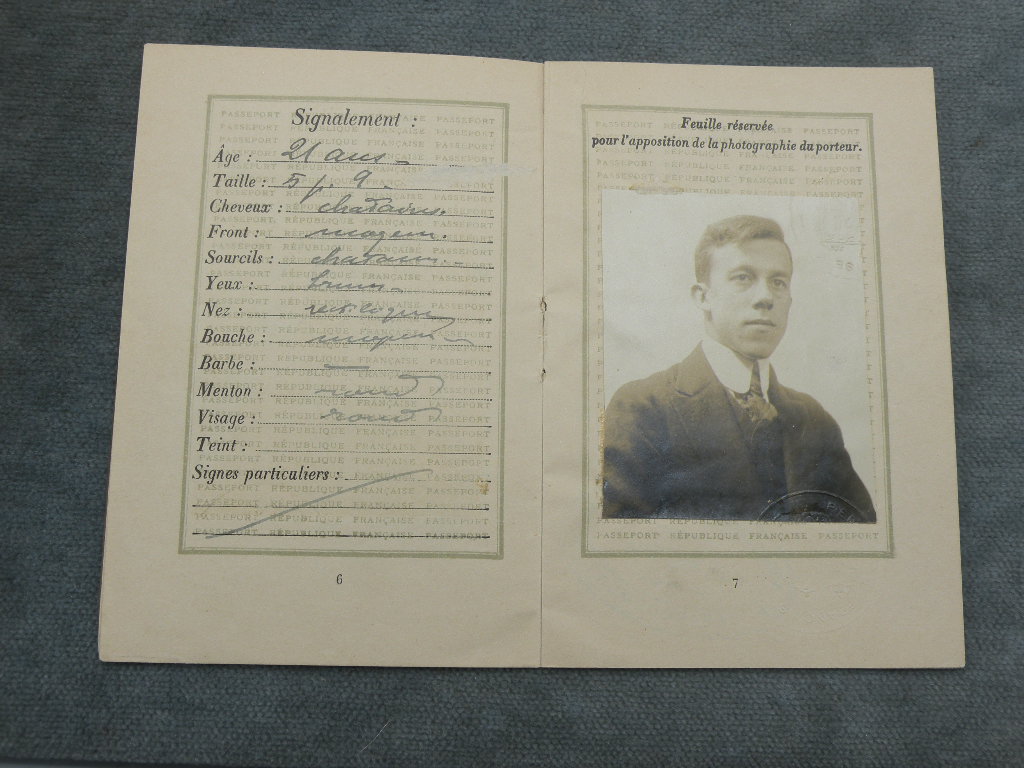 Signalement :
Âge : 21 ans
Taille : 5 p. 9
Cheveux : chatains.
Front : moyen.
Sourcils : chatains.
Yeux : bruns
Nez : rectiligne
Bouche : moyenne
Barbe : —
Menton : rond
Visage : rond
Teint :
Signes particuliers :
6
Feuille réservée
pour l'apposition de la photographie du porteur.
PASSEPORT RÉPUBLIQUE FRANÇAISE PASSEPORT
7